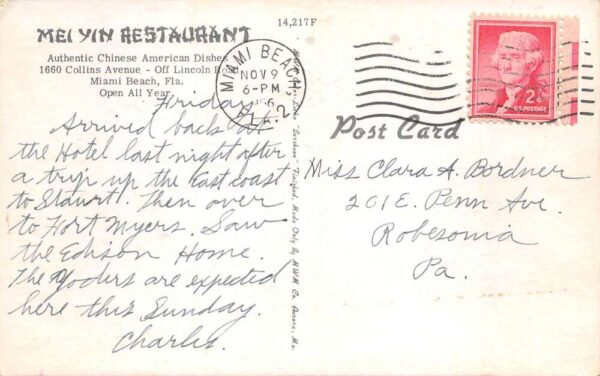 14,217F
MEI YIN RESTAURANT
Authentic Chinese American Dishes
1660 Collins Avenue - Off Lincoln
Miami Beach, Fla.
Open All Year
Friday
Arrived back at
the Hotel last night after
a trip up the East coast
to Stuart. Then over
to Fort Myers. Saw
the Edison Home.
The Yoders are expected
here this Sunday.
Charles.
"Duchess" Finished. Made Only By M.W.M. Co. Aurora, Mo.
MIAMI BEACH,
NOV 9
6-PM
FLA. 2
2¢
U.S. POSTAGE
Post Card
Miss Clara A. Bordner
201 E. Penn Ave.
Robesonia
Pa.